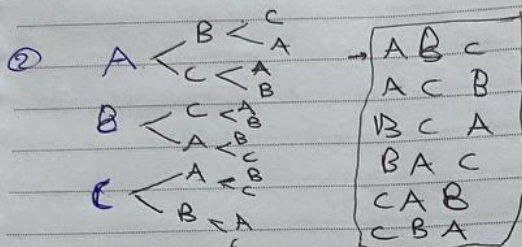 ② A < B < C
A
C < A
B
B < C < A
B
A < B
C
C < A < B
C
B < A
C
→ A B C
A C B
B C A
B A C
C A B
C B A